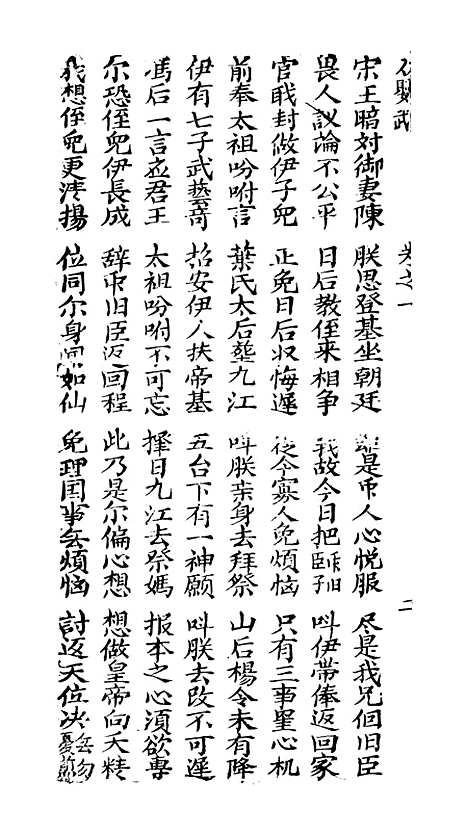 卷之一 二
宋王暗対御妻陳 朕思登基坐朝廷 雖是帀人心悦服 尽是我兄個旧臣
畏人議論不公平 日后教侄来相争 我故今日把 叫伊帶俸返回家
官戝封做伊子兒 正免日后収悔遲 從今寡人免煩恼 只有三事里心机
前奉太祖吩咐言 葉氏太后塟九江 叫朕亲身去拜祭 山后楊令未有降
伊有七子武藝奇 招安伊人扶帝基 五台下有一神願 叫朕去改不可遲
馮后一言应君王 太祖吩咐不可忘 擇日九江去祭媽 报本之心須欲専
尔恐侄兒伊長成 辞帀旧臣返回程 此乃是尔偏心想 想做皇帝向天精
我想侄兒更清揚 位同尔身間如仙 免理国事無煩恼 討返天位决無勿憂